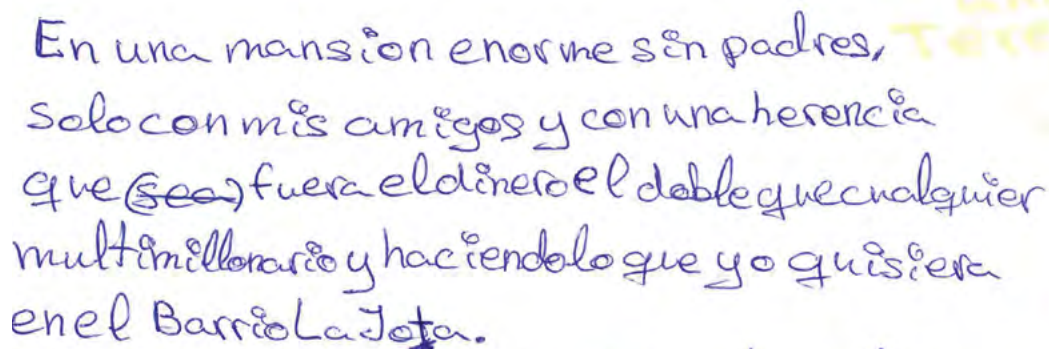 En una mansion enorme sin padres,
solo con mis amigos y con una herencia
que (sea) fuera el dinero el doble que cualquier
multimillonario y haciendo lo que yo quisiera
en el Barrio La Jota.